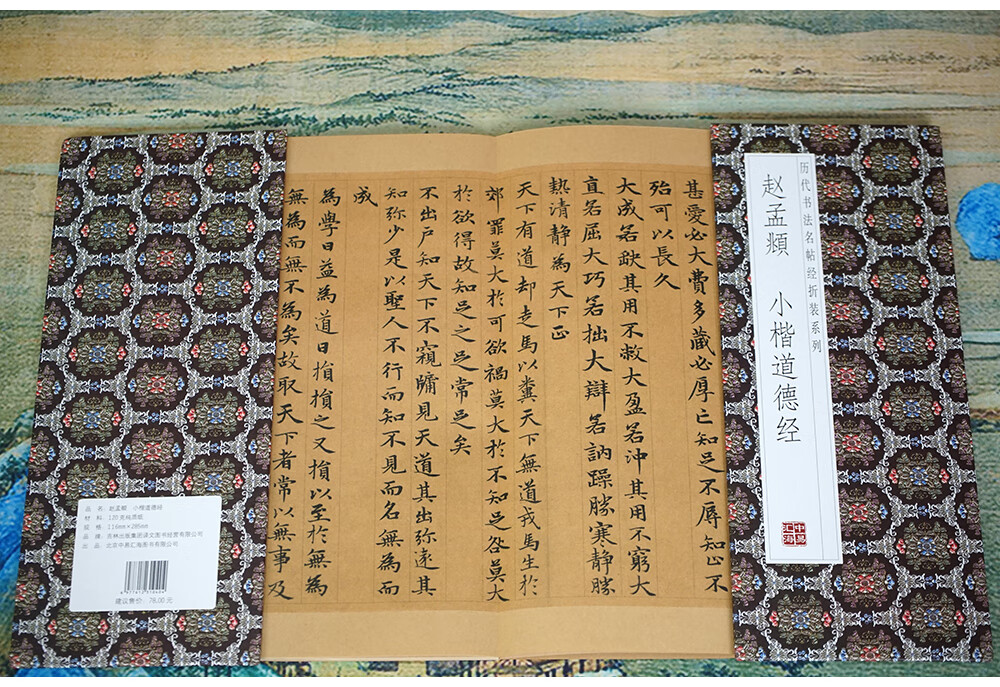 历代书法名帖经折装系列
赵孟頫 小楷道德经
中易汇海
甚愛必大費多藏必厚亡知足不辱知止不
殆可以長久
大成若缺其用不敝大盈若沖其用不窮大
直若屈大巧若拙大辯若訥躁勝寒静勝
熱清静為天下正
天下有道却走馬以糞天下無道戎馬生於
郊罪莫大於可欲禍莫大於不知足咎莫大
於欲得故知足之足常足矣
不出户知天下不窺牖見天道其出弥逺其
知弥少是以聖人不行而知不見而名無為而
成
為學日益為道日損損之又損以至於無為
無為而無不為矣故取天下者常以無事及
品 名: 赵孟頫 小楷道德经
材 料: 120克纯质纸
规 格: 116mm×286mm
品 牌: 吉林出版集团译文图书经营有限公司
出 品: 北京中易汇海图书有限公司
建议售价: 78.00元